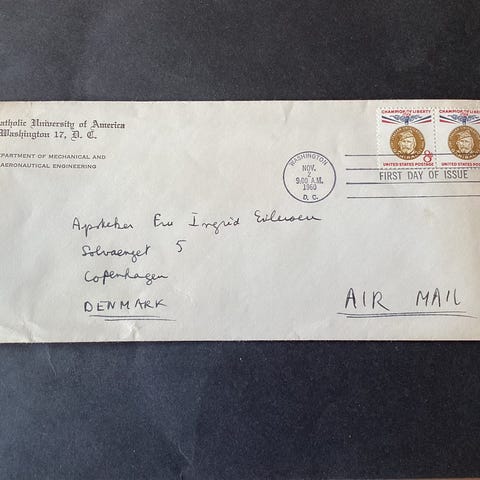 atholic University of America
Washington 17, D. C.
EPARTMENT OF MECHANICAL AND
AERONAUTICAL ENGINEERING
CHAMPION OF LIBERTY
8c
UNITED STATES POSTAGE
CHAMPION OF LIBERTY
UNITED STATES POSTA
WASHINGTON
NOV.
2
9:00 A.M.
1960
D. C.
FIRST DAY OF ISSUE
Apoteker Fru Ingrid
Solvaenget 5
Copenhagen
DENMARK
AIR MAIL